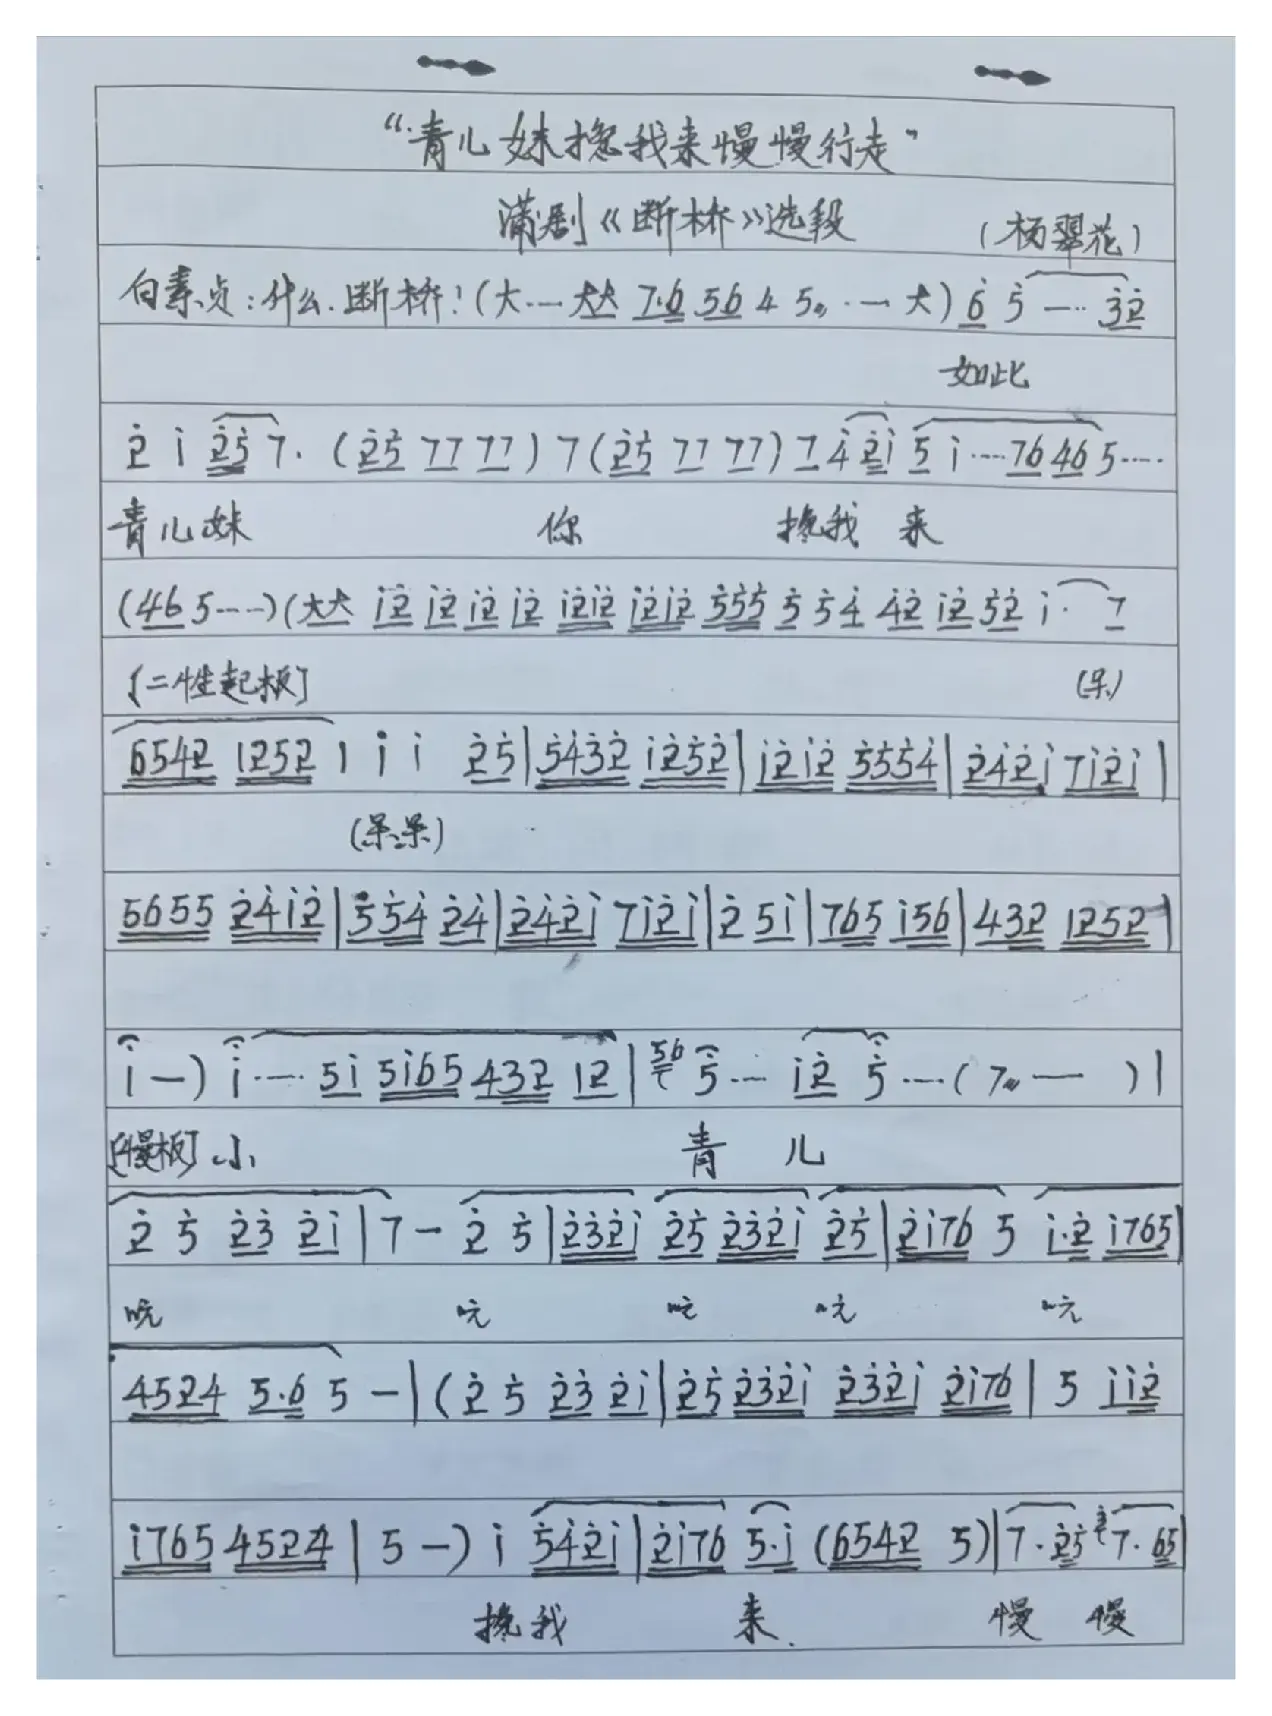 “青儿妹搀我来慢慢行走”
蒲剧《断桥》选段 (杨翠花)
白素贞:什么.断桥!(大…·大大 7·6 56 45〃·一大) 6̇ 5̇ —·· 3̇2̇
如此
2̇ i 2̇5̇ 7·(2̇5̇ 77 77) 7 (2̇5̇ 77 77) 7 4̇ 2̇i 5 i····76 46 5····
青儿妹 你 搀我 来
(46 5----)(大大 i2̇ i2̇ i2̇ i2̇ i2̇i2̇ i2̇i2̇ 5̇5̇5̇ 5̇ 5̇ 4̇ 4̇2̇ i2̇ 5̇2̇ i· 7
[二性起板] (呆)
6542 1252 1 i i 2̇5̇|5̇4̇3̇2̇ i2̇5̇2̇|i2̇i2̇ 5̇5̇5̇4̇|2̇4̇2̇i 7i2̇i|
(呆呆)
5655 2̇4̇i2̇|5̇5̇4̇ 2̇4̇|2̇4̇2̇i 7i2̇i|2̇ 5i|765 i56|432 1252|
i —) i···· 5i 5i65 432 12|56 5̇--- i2̇ 5̇----(7〃 — )|
[慢板] 小 青 儿
2̇ 5̇ 2̇3̇ 2̇i|7 — 2̇ 5̇|2̇3̇2̇i 2̇5̇ 2̇3̇2̇i 2̇5̇|2̇i76 5 i·2̇ i765|
吭 吭 吭 吭 吭
4524 5·6 5 —|(2̇ 5̇ 2̇3̇ 2̇i|2̇5̇ 2̇3̇2̇i 2̇3̇2̇i 2̇i76|5 ii2̇
i765 4524|5 —) i 5̇4̇2̇i|2̇i76 5·i (6542 5)|7·2̇5̇ 7·65|
搀我 来. 慢 慢